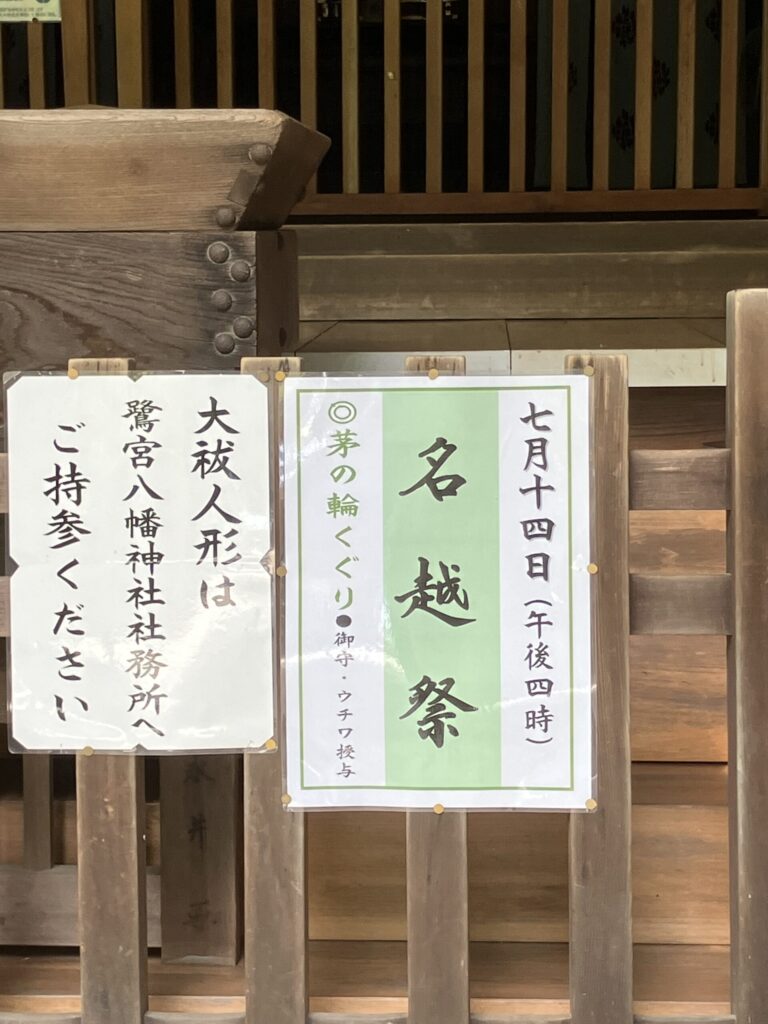 七月十四日（午後四時）
名越祭
◎茅の輪くぐり●御守・ウチワ授与
大祓人形は
鷺宮八幡神社社務所へ
ご持参ください